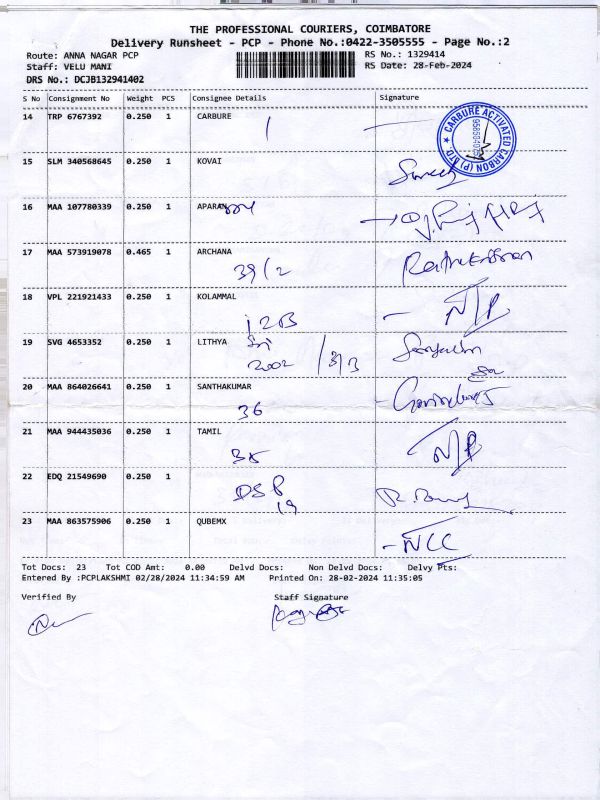 THE PROFESSIONAL COURIERS, COIMBATORE
Delivery Runsheet - PCP - Phone No.:0422-3505555 - Page No.:2
Route: ANNA NAGAR PCP RS No.: 1329414
Staff: VELU MANI RS Date: 28-Feb-2024
DRS No.: DCJB132941402
S No Consignment No Weight PCS Consignee Details Signature
14 TRP 6767392 0.250 1 CARBURE
CARBURE ACTIVATED CARBON (P) LTD
15 SLM 340568645 0.250 1 KOVAI
Suresh
16 MAA 107780339 0.250 1 APARAN
17 MAA 573919078 0.465 1 ARCHANA
39/2
18 VPL 221921433 0.250 1 KOLAMMAL
N/P
19 SVG 4653352 0.250 1 LITHYA
Sri
2002
20 MAA 864026641 0.250 1 SANTHAKUMAR
36
21 MAA 944435036 0.250 1 TAMIL
N/P
22 EDQ 21549690 0.250 1
DSP
19
23 MAA 863575906 0.250 1 QUBEMX
- NCC
Tot Docs: 23 Tot COD Amt: 0.00 Delvd Docs: Non Delvd Docs: Delvy Pts:
Entered By :PCPLAKSHMI 02/28/2024 11:34:59 AM Printed On: 28-02-2024 11:35:05
Verified By Staff Signature